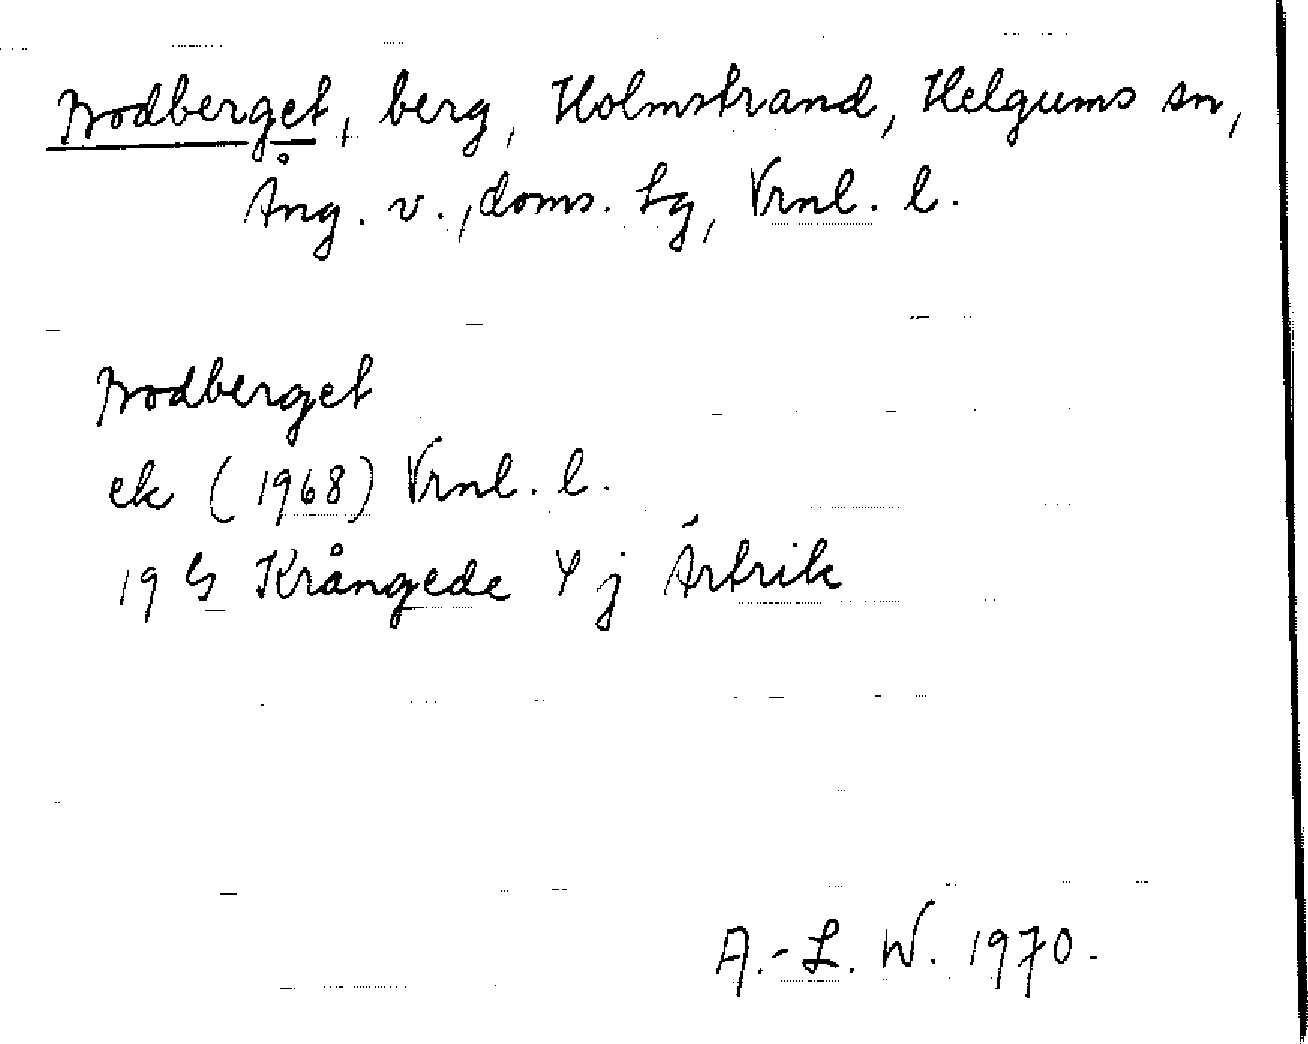 Bodberget, berg, Holmstrand, Helgums sn,
Ång. v., doms. tg, Vrnl. l.
Bodberget
ek (1968) Vrnl. l.
19 G Krångede 4 j Ärtrik
A.-L. W. 1970.